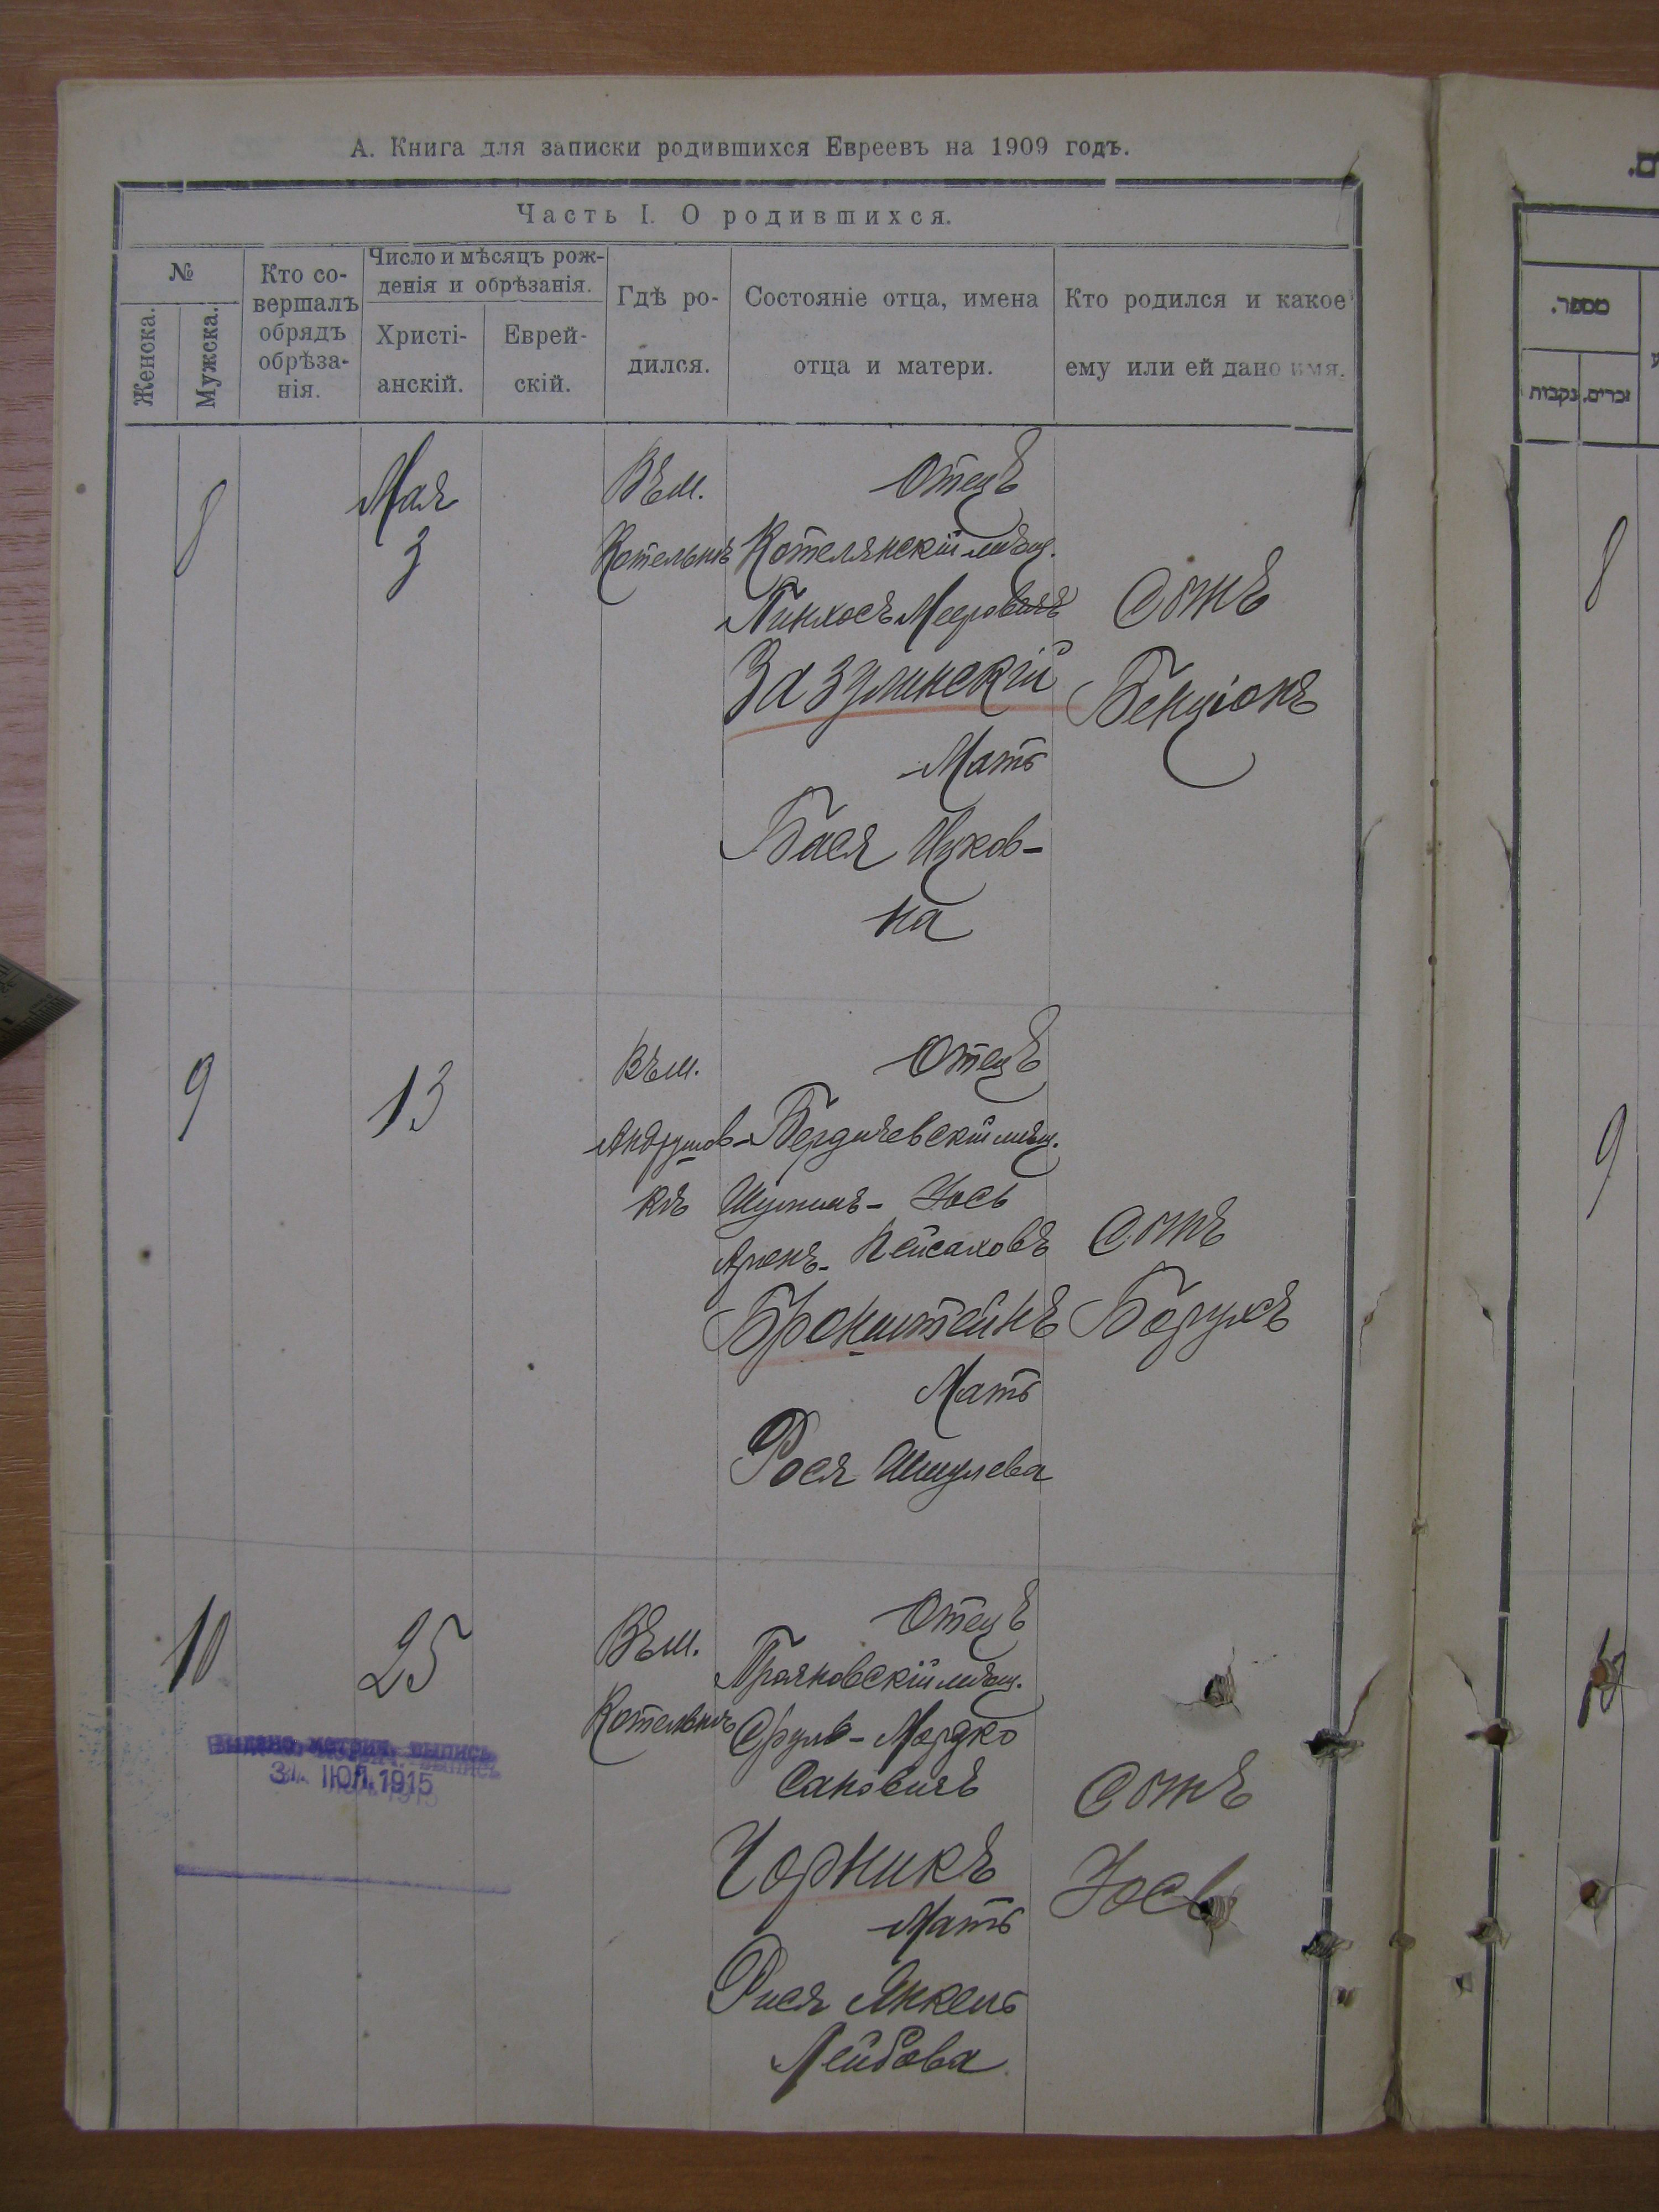 А. Книга для записки родившихся Евреевъ на 1909 годъ.
Часть I. О родившихся.
№
Женска.
Мужска.
Кто со-
вершалъ
обрядъ
обрѣза-
нія.
Число и мѣсяцъ рож-
денія и обрѣзанія.
Христі-
анскій.
Еврей-
скій.
Гдѣ ро-
дился.
Состояніе отца, имена
отца и матери.
Кто родился и какое
ему или ей дано имя.
8
Мая
3
Въ м.
Котельнѣ
Отецъ
Котелянскій мѣщ.
Пинхосъ Мееровичъ
Зазулинскій
Мать
Бася Ицков-
на
Сынъ
Бенціонъ
9
13
Въ м.
Андрушов-
кѣ
Отецъ
Бердичевскій мѣщ.
Шулимъ - Іось
Аронъ - Пейсаховъ
Бронштейнъ
Мать
Рося Шмулева
Сынъ
Борухъ
10
25
Въ м.
Котельнѣ
Отецъ
Прояновскій мѣщ.
Сруль - Мордко
Чорникъ
Мать
Рися Янкель
Лейбова
Сынъ
Іось
Выдана метрич. выпись
31 ІЮЛ. 1915
מספר.
זכרים.
נקבות
8
9
10